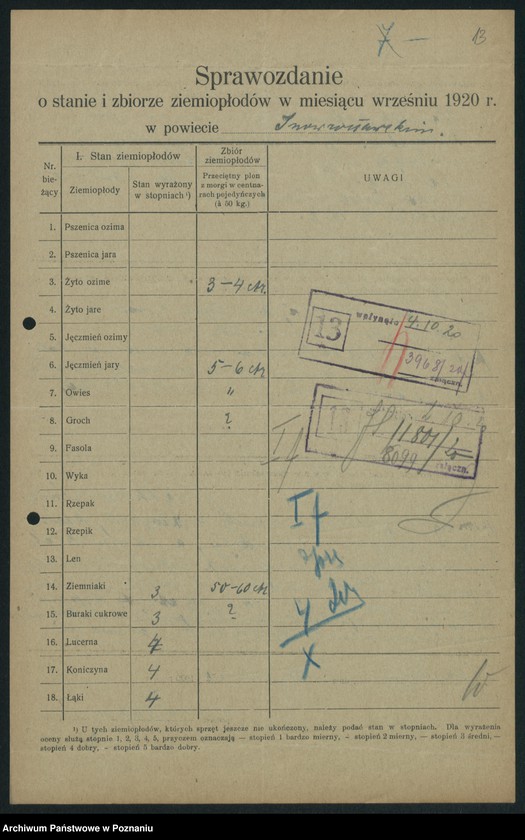 7 —
13
Sprawozdanie
o stanie i zbiorze ziemiopłodów w miesiącu wrześniu 1920 r.
w powiecie Inowrocławskim.
Nr. bie- żący
I. Stan ziemiopłodów
Ziemiopłody
Stan wyrażony w stopniach ¹)
Zbiór ziemiopłodów
Przeciętny plon z morgi w centna- rach pojedyńczych (à 50 kg.)
UWAGI
1. Pszenica ozima
2. Pszenica jara
3. Żyto ozime 3—4 ctr.
4. Żyto jare
5. Jęczmień ozimy
6. Jęczmień jary 5—6 ctr.
7. Owies "
8. Groch ?
9. Fasola
10. Wyka
11. Rzepak
12. Rzepik
13. Len
14. Ziemniaki 3 50—60 ctr
15. Buraki cukrowe 3 ?
16. Lucerna 4
17. Koniczyna 4
18. Łąki 4
13
wpłynęło 4.10.20
3968/
załączn.
13
11801/
8099
załączn.
¹) U tych ziemiopłodów, których sprzęt jeszcze nie ukończony, należy podać stan w stopniach. Dla wyrażenia
oceny służą stopnie 1, 2, 3, 4, 5, przyczem oznaczają — stopień 1 bardzo mierny, - stopień 2 mierny, — stopień 3 średni, —
stopień 4 dobry, - stopień 5 bardzo dobry.
Archiwum Państwowe w Poznaniu